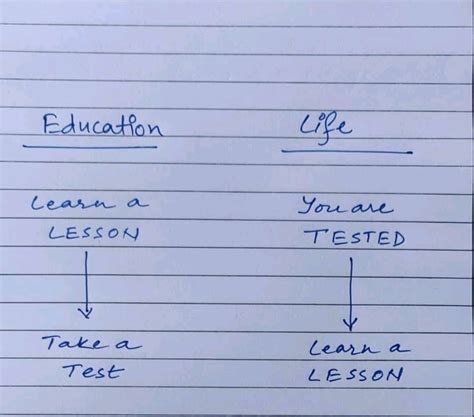 Education
Learn a
LESSON
Take a
Test
Life
You are
TESTED
Learn a
LESSON